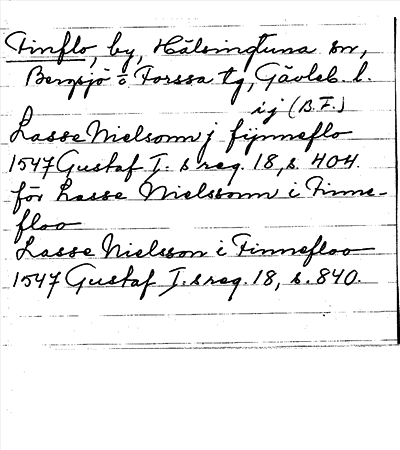 Finflo, by, Hälsingtuna sn,
Bergsjö o Forssa tg, Gävleb. l.
ij (B.F.)
Lasse Nielsonn j fijnneflo
1547 Gustaf I. s reg. 18, s. 404.
för Lasse Nielssonn i Finne-
floo
Lasse Nielsson i Finnefloo
1547 Gustaf I. s reg. 18, s. 840.